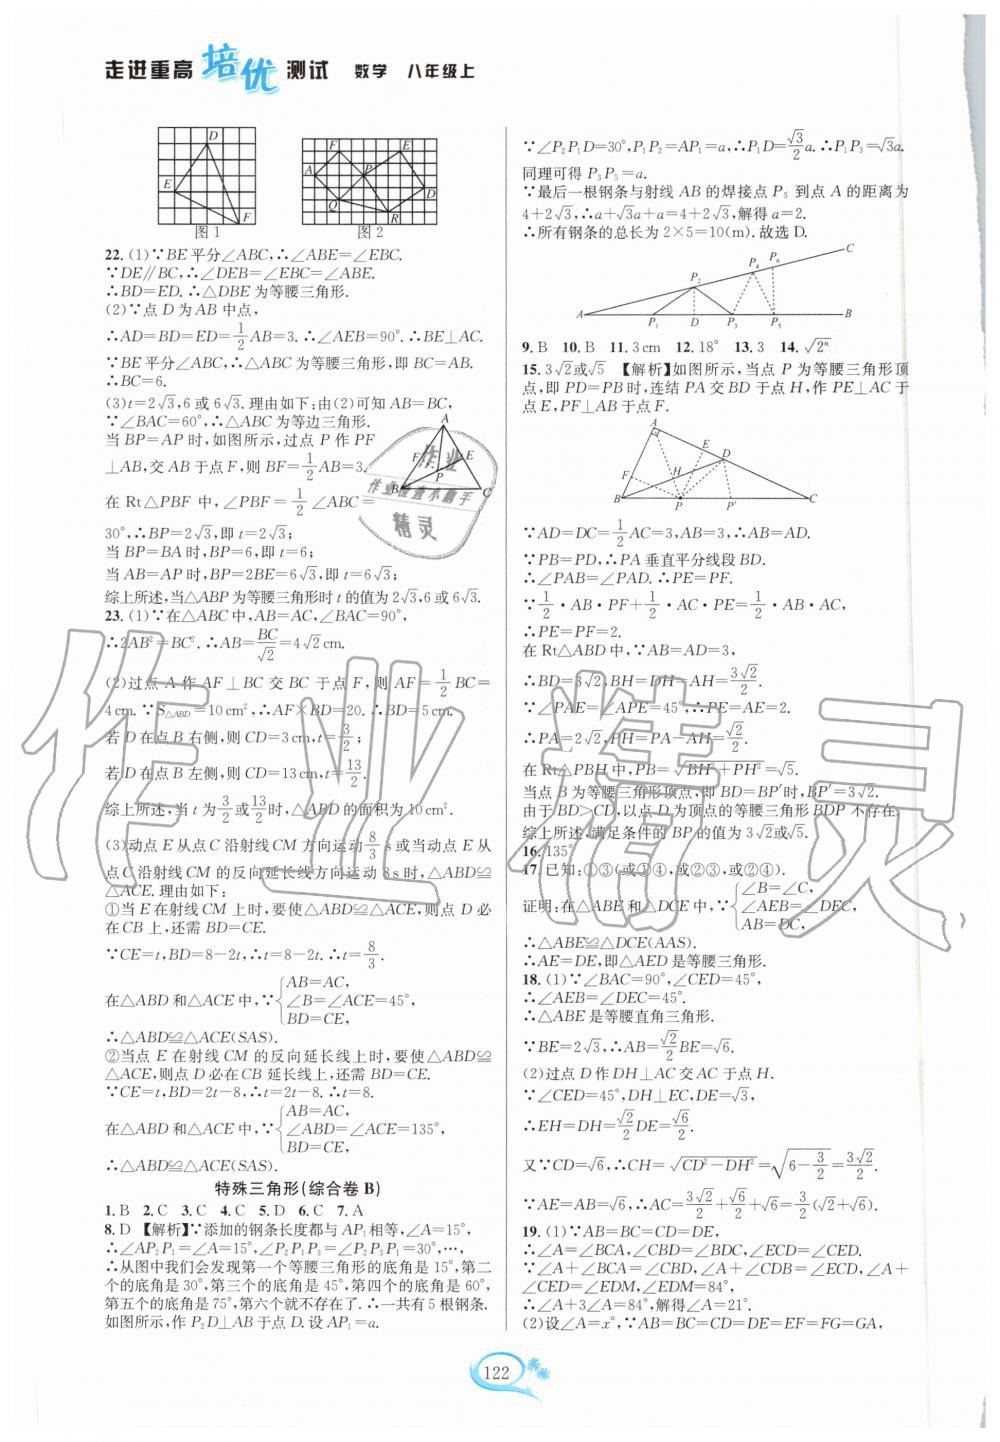 走进重高 培优 测试 数学 八年级上
D
E
F
图1
F
E
A
P
D
Q
R
图2
22. (1)∵BE平分∠ABC,∴∠ABE=∠EBC.
∵DE∥BC,∴∠DEB=∠EBC=∠ABE.
∴BD=ED.∴△DBE为等腰三角形.
(2)∵点D为AB中点,
∴AD=BD=ED=1/2AB=3.∴∠AEB=90°.∴BE⊥AC.
∵BE平分∠ABC,∴△ABC为等腰三角形,即BC=AB.
∴BC=6.
(3)t=2√3,6或6√3.理由如下:由(2)可知AB=BC,
∵∠BAC=60°,∴△ABC为等边三角形.
当BP=AP时,如图所示,过点P作PF
⊥AB,交AB于点F,则BF=1/2AB=3.
在Rt△PBF中,∠PBF=1/2∠ABC=
30°,∴BP=2√3,即t=2√3;
当BP=BA时,BP=6,即t=6;
当AB=AP时,BP=2BE=6√3,即t=6√3;
综上所述,当△ABP为等腰三角形时t的值为2√3,6或6√3.
A
F
E
P
B
C
23. (1)∵在△ABC中,AB=AC,∠BAC=90°,
∴2AB²=BC².∴AB=BC/√2=4√2cm.
(2)过点A作AF⊥BC交BC于点F,则AF=1/2BC=
4cm.∵S△ABD=10cm²,∴AF×BD=20.∴BD=5cm.
若D在点B右侧,则CD=3cm,t=3/2;
若D在点B左侧,则CD=13cm,t=13/2.
综上所述,当t为3/2或13/2时,△ABD的面积为10cm².
(3)动点E从点C沿射线CM方向运动8/3s或当动点E从
点C沿射线CM的反向延长线方向运动8s时,△ABD≌
△ACE.理由如下:
①当E在射线CM上时,要使△ABD≌△ACE,则点D必
在CB上,还需BD=CE.
∵CE=t,BD=8-2t,∴t=8-2t.∴t=8/3.
在△ABD和△ACE中,∵{AB=AC, ∠B=∠ACE=45°, BD=CE,
∴△ABD≌△ACE(SAS).
②当点E在射线CM的反向延长线上时,要使△ABD≌
△ACE,则点D必在CB延长线上,还需BD=CE.
∵CE=t,BD=2t-8,∴t=2t-8.∴t=8.
在△ABD和△ACE中,∵{AB=AC, ∠ABD=∠ACE=135°, BD=CE,
∴△ABD≌△ACE(SAS).
特殊三角形(综合卷B)
1. B 2. C 3. C 4. C 5. D 6. C 7. A
8. D 【解析】∵添加的钢条长度都与AP₁相等,∠A=15°,
∴∠AP₂P₁=∠A=15°,∠P₂P₁P₃=∠P₂P₃P₁=30°,…,
∴从图中我们会发现第一个等腰三角形的底角是15°,第二
个的底角是30°,第三个的底角是45°,第四个的底角是60°,
第五个的底角是75°,第六个就不存在了.∴一共有5根钢条.
如图所示,作P₂D⊥AB于点D.设AP₁=a.
∵∠P₂P₁D=30°,P₁P₂=AP₁=a,∴P₁D=√3/2a.∴P₁P₃=√3a.
同理可得P₃P₅=a.
∵最后一根钢条与射线AB的焊接点P₅到点A的距离为
4+2√3,∴a+√3a+a=4+2√3,解得a=2.
∴所有钢条的总长为2×5=10(m).故选D.
C
P₆
P₄
P₂
A
P₁
D
P₃
P₅
B
9. B 10. B 11. 3cm 12. 18° 13. 3 14. √2ⁿ
15. 3√2或√5 【解析】如图所示,当点P为等腰三角形顶
点,即PD=PB时,连结PA交BD于点H,作PE⊥AC于
点E,PF⊥AB于点F.
A
E
D
F
H
B
P
P′
C
∵AD=DC=1/2AC=3,AB=3,∴AB=AD.
∵PB=PD,∴PA垂直平分线段BD.
∴∠PAB=∠PAD.∴PE=PF.
∵1/2·AB·PF+1/2·AC·PE=1/2·AB·AC,
∴PE=PF=2.
在Rt△ABD中,∵AB=AD=3,
∴BD=3√2,BH=DH=AH=3√2/2.
∵∠PAE=∠APE=45°,∴PE=AE=2.
∴PA=2√2,PH=PA-AH=√2/2.
在Rt△PBH中,PB=√BH²+PH²=√5.
当点B为等腰三角形顶点,即BD=BP′时,BP′=3√2.
由于BD>CD,以点D为顶点的等腰三角形BDP不存在.
综上所述,满足条件的BP的值为3√2或√5.
16. 135°
17. 已知:①③(或①④,或②③,或②④).
证明:在△ABE和△DCE中,∵{∠B=∠C, ∠AEB=∠DEC, AB=DC,
∴△ABE≌△DCE(AAS).
∴AE=DE,即△AED是等腰三角形.
18. (1)∵∠BAC=90°,∠CED=45°,
∴∠AEB=∠DEC=45°.
∴△ABE是等腰直角三角形.
∵BE=2√3,∴AB=√2/2BE=√6.
(2)过点D作DH⊥AC交AC于点H.
∵∠CED=45°,DH⊥EC,DE=√3,
∴EH=DH=√2/2DE=√6/2.
又∵CD=√6,∴CH=√CD²-DH²=√6-3/2=3√2/2.
∵AE=AB=√6,∴AC=3√2/2+√6/2+√6=3/2(√2+√6).
19. (1)∵AB=BC=CD=DE,
∴∠A=∠BCA,∠CBD=∠BDC,∠ECD=∠CED.
∵∠A+∠BCA=∠CBD,∠A+∠CDB=∠ECD,∠A+
∠CED=∠EDM,∠EDM=84°,
∴∠A+3∠A=84°,解得∠A=21°.
(2)设∠A=x°,∵AB=BC=CD=DE=EF=FG=GA,
122
作业精灵
作业
作业检查小助手
精灵